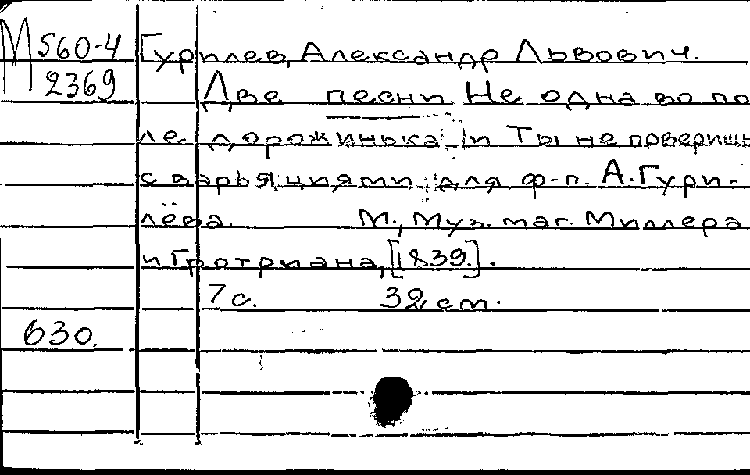 М 560-4 Гурилев, Александр Львович.
2369 Две песни Не одна во по
ле дорожинька и Ты не поверишь
с варьяциями для ф-п. А.Гури-
лёва. М., Муз. маг. Миллера
и Гротриана, [1839].
7 с. 32 см.
630.